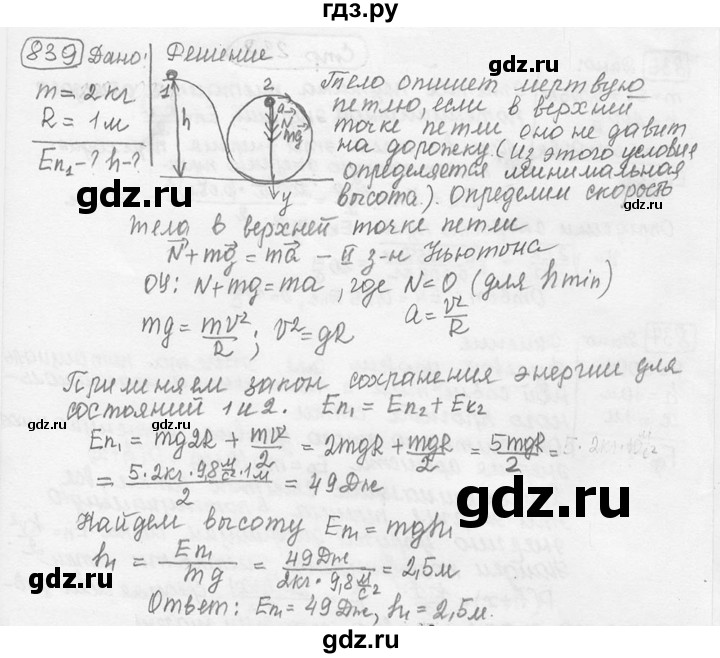 гдз.ру
839 Дано: Решение
m = 2 кг
R = 1 м
Eп₁ - ? h - ?
h
2
a
N
mg
y
Тело опишет мертвую
петлю, если в верхней
точке петли оно не давит
на дорожку (из этого условия
определяется минимальная
высота). Определим скорость
тела в верхней точке петли
N + mg = ma – II з-н Ньютона
ОУ: N + mg = ma, где N = 0 (для h min)
a = v²/R
mg = mv²/R; v² = gR
Применяем закон сохранения энергии для
состояний 1 и 2. Eп₁ = Eп₂ + Eк₂
Eп₁ = mg2R + mv²/2 = 2mgR + mgR/2 = 5mgR/2 =
= 5·2кг·9,8 м/с²·1м / 2 = 49 Дж
Найдем высоту Eп₁ = mgh₁
h₁ = Eп₁/mg = 49Дж / 2кг·9,8 м/с² = 2,5м
Ответ: Eп₁ = 49 Дж, h₁ = 2,5м.
gdz.ru
gdz.ru
gdz.ru
gdz.ru
gdz.ru
gdz.ru
gdz.ru
gdz.ru
gdz.ru
gdz.ru
gdz.ru